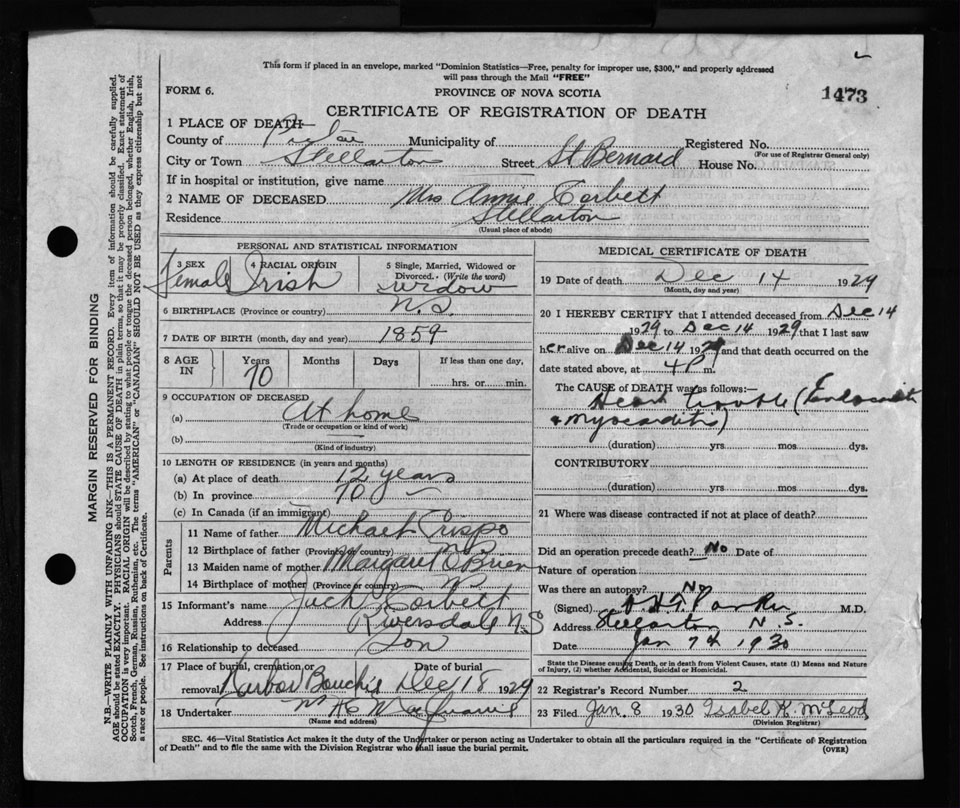 This form if placed in an envelope, marked "Dominion Statistics—Free, penalty for improper use, $300," and properly addressed
will pass through the Mail "FREE"
FORM 6.
PROVINCE OF NOVA SCOTIA
1473
CERTIFICATE OF REGISTRATION OF DEATH
1 PLACE OF DEATH—
County of Pictou Municipality of Registered No.
(For use of Registrar General only)
City or Town Stellarton Street St Bernard House No.
If in hospital or institution, give name
2 NAME OF DECEASED Mrs Annie Corbett
Residence Stellarton
(Usual place of abode)
PERSONAL AND STATISTICAL INFORMATION
3 SEX 4 RACIAL ORIGIN 5 Single, Married, Widowed or
Divorced. (Write the word)
Female Irish widow
6 BIRTHPLACE (Province or country) N.S.
7 DATE OF BIRTH (month, day and year) 1859
8 AGE IN Years Months Days If less than one day,
70 hrs. or min.
9 OCCUPATION OF DECEASED
(a) At home
(Trade or occupation or kind of work)
(b)
(Kind of industry)
10 LENGTH OF RESIDENCE (in years and months)
(a) At place of death 12 years
(b) In province 70
(c) In Canada (if an immigrant)
Parents
11 Name of father Michael Crispo
12 Birthplace of father (Province or country) N.S.
13 Maiden name of mother Margaret O'Brien
14 Birthplace of mother (Province or country)
15 Informant's name Jack Corbett
Address Riversdale N.S
16 Relationship to deceased Son
17 Place of burial, cremation or Date of burial
removal Harbor Bouchie Dec 18 1929
18 Undertaker
(Name and address)
MEDICAL CERTIFICATE OF DEATH
19 Date of death Dec 14 1929
(Month, day and year)
20 I HEREBY CERTIFY that I attended deceased from Dec 14
1929 to Dec 14 1929 that I last saw
her alive on Dec 14 1929 and that death occurred on the
date stated above, at 4 P m.
The CAUSE of DEATH was as follows:—
Heart trouble (Endocarditis
& myocarditis)
(duration) yrs mos dys.
CONTRIBUTORY
(duration) yrs mos dys.
21 Where was disease contracted if not at place of death?
Did an operation precede death? No Date of
Nature of operation
Was there an autopsy? No
(Signed) Parker M.D.
Address Stellarton N.S.
Date Jan 7th 1930
State the Disease causing Death, or in death from Violent Causes, state (1) Means and Nature
of Injury, (2) whether Accidental, Suicidal or Homicidal.
22 Registrar's Record Number 2
23 Filed Jan. 8 1930 Isabel K. McLeod
(Division Registrar)
SEC. 46—Vital Statistics Act makes it the duty of the Undertaker or person acting as Undertaker to obtain all the particulars required in the "Certificate of Registration
of Death" and to file the same with the Division Registrar who shall issue the burial permit. (OVER)
MARGIN RESERVED FOR BINDING
N.B.—WRITE PLAINLY WITH UNFADING INK—THIS IS A PERMANENT RECORD. Every item of information should be carefully supplied.
AGE should be stated EXACTLY. PHYSICIANS should STATE CAUSE OF DEATH in plain terms, so that it may be properly classified. Exact statement of
OCCUPATION is very important. RACIAL ORIGIN will be described by stating to what people or tongue the deceased person belonged, whether English, Irish,
Scotch, French, German, Russian, Ruthenian, etc. The terms "AMERICAN" or "CANADIAN" SHOULD NOT BE USED as they express citizenship but not
a race or people. See instructions on back of Certificate.